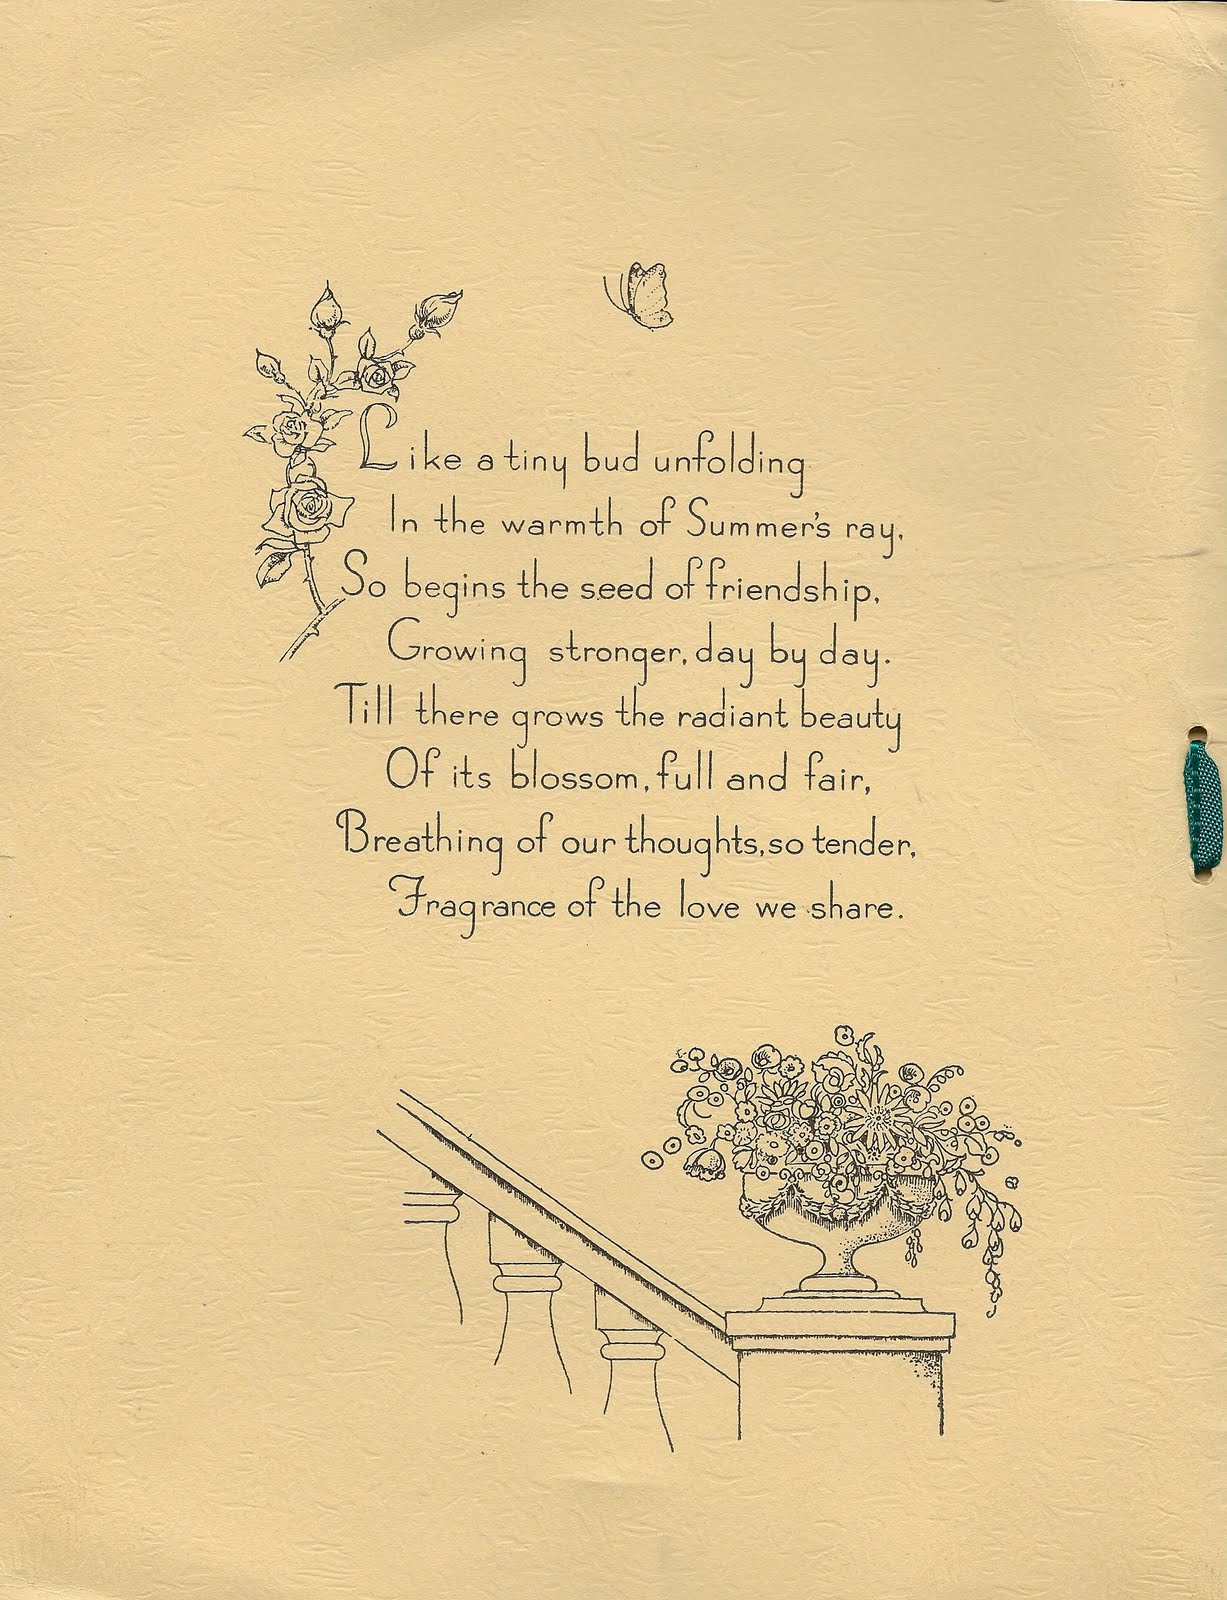 Like a tiny bud unfolding
In the warmth of Summer's ray,
So begins the seed of friendship,
Growing stronger, day by day.
Till there grows the radiant beauty
Of its blossom, full and fair,
Breathing of our thoughts, so tender,
Fragrance of the love we share.